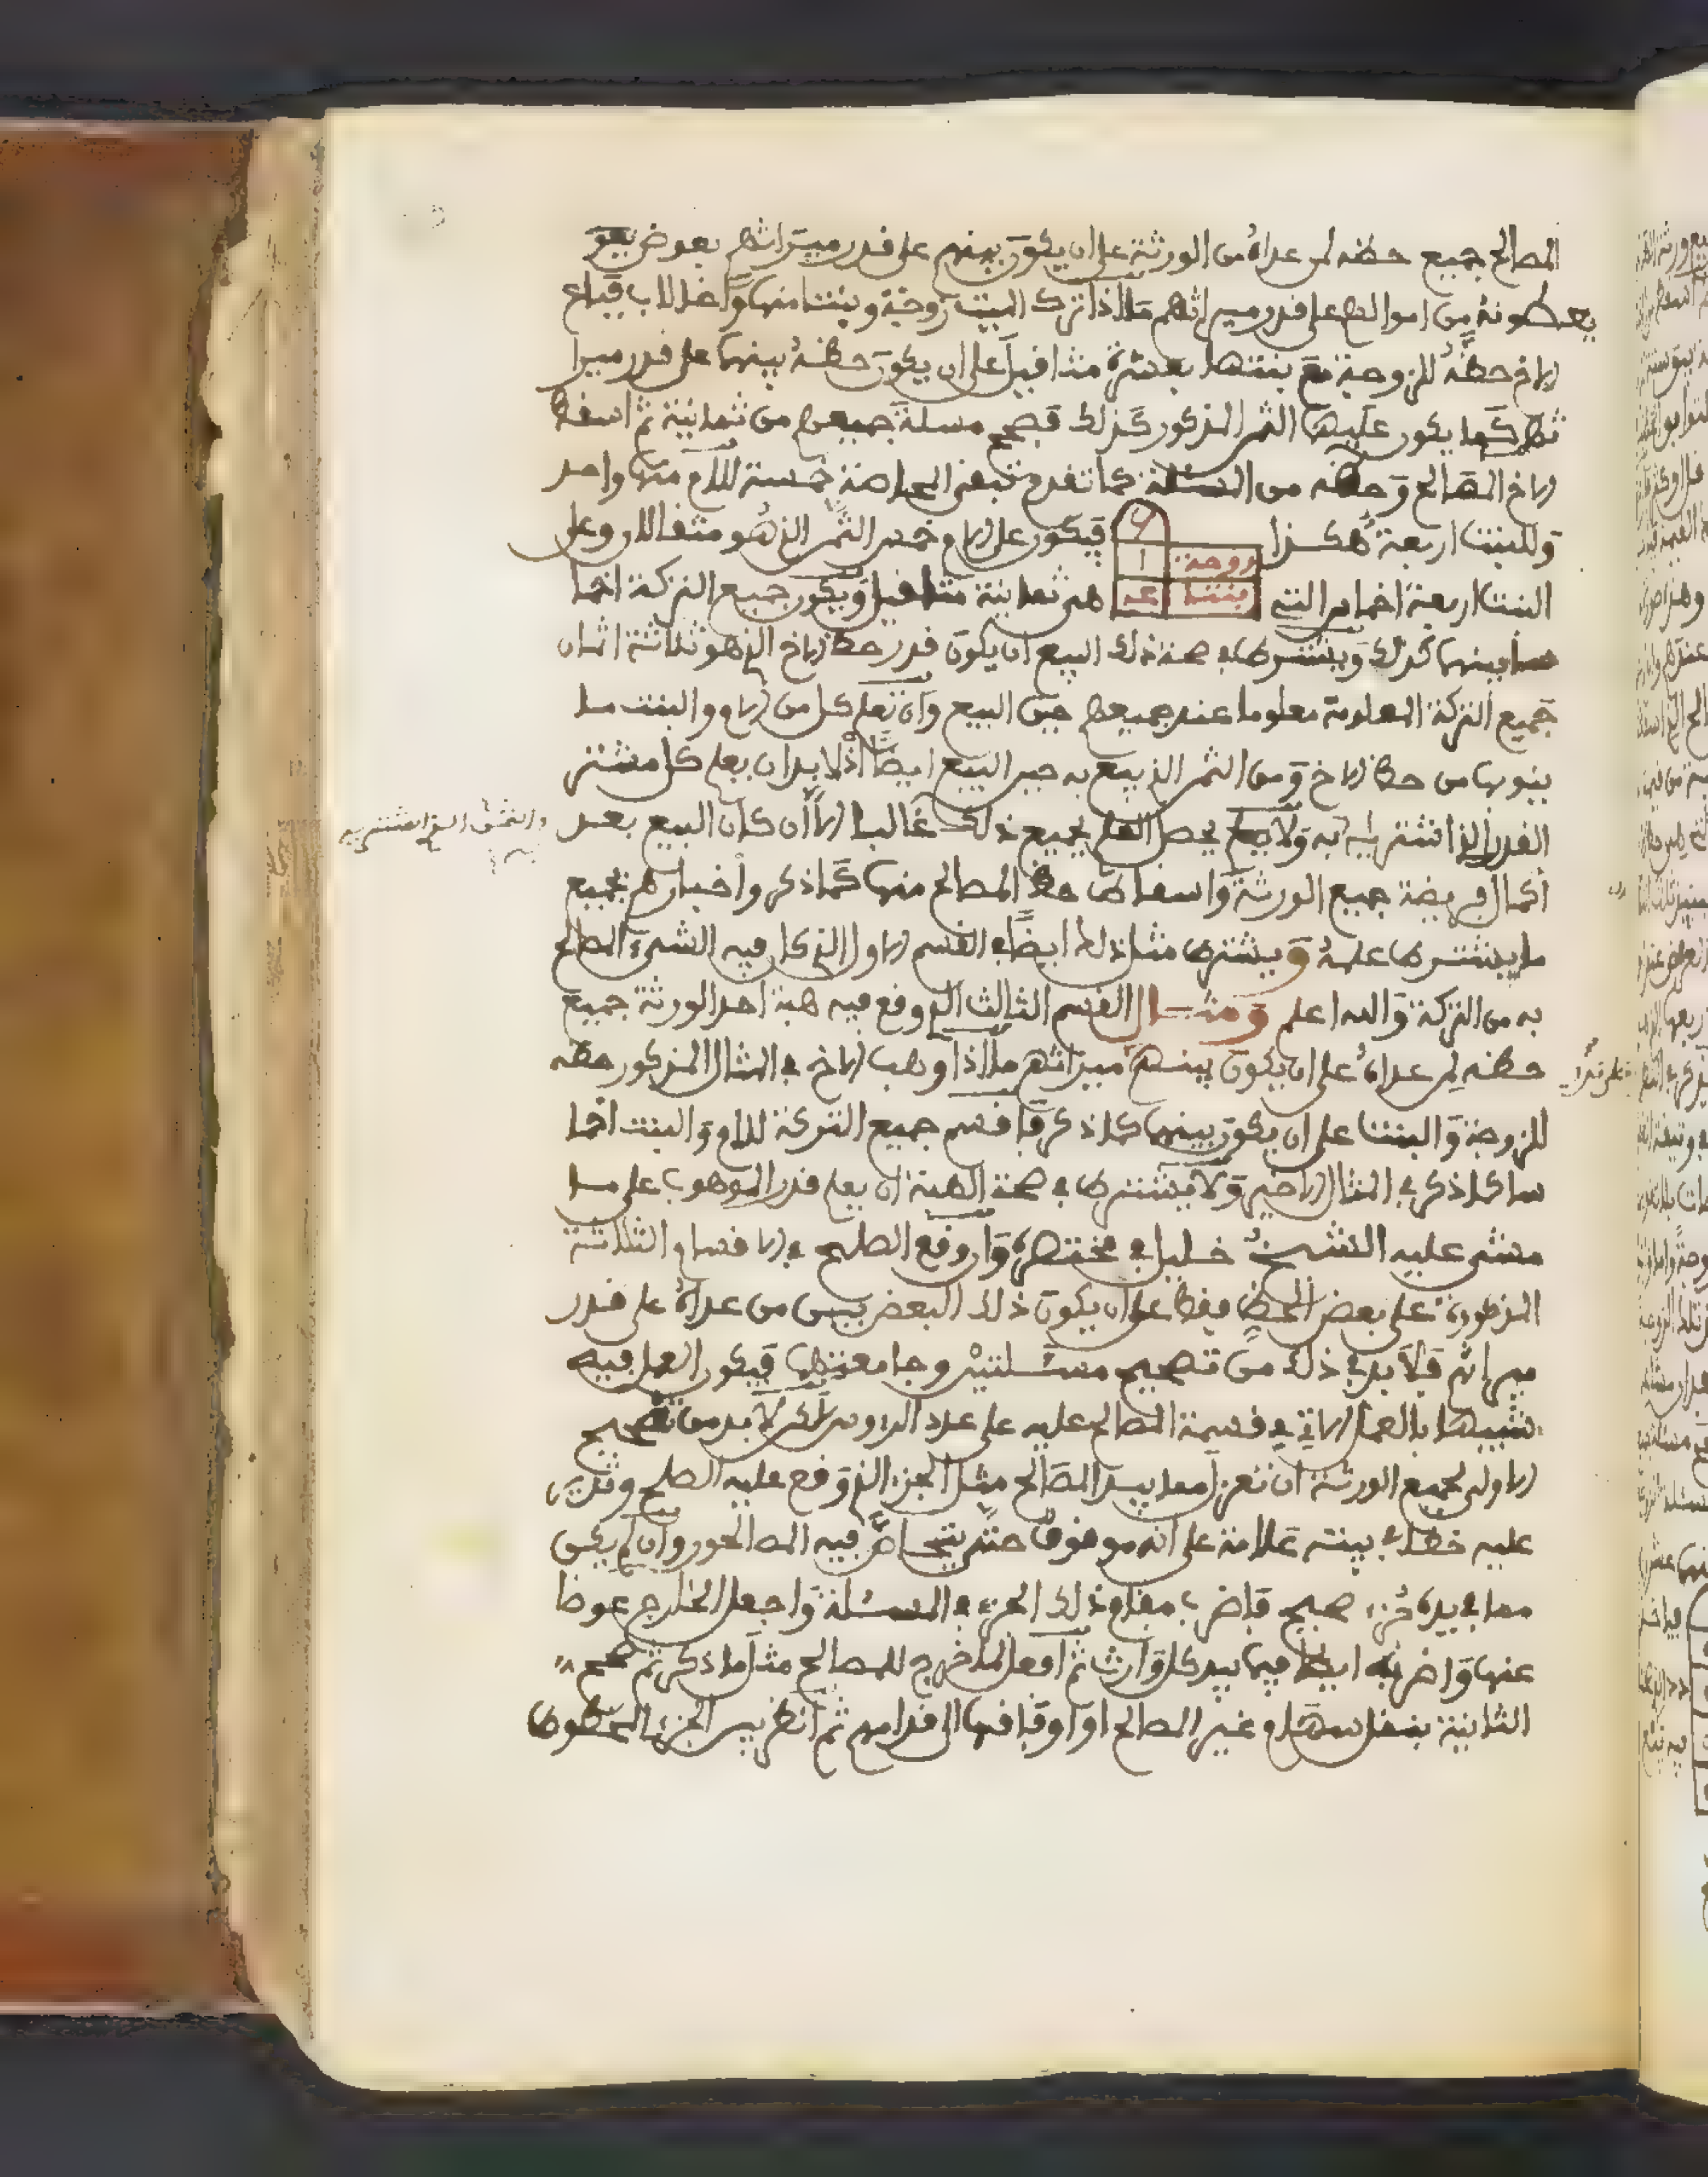 المصالح جميع حظه لمن عداه من الورثة على ان يكون بينهم على قدر ميراثهم بعوض
يعطونه من اموالهم على قدر ميراثهم مثلا اذا ترك الميت زوجة وبنتا منها واخا لاب فباع
الاخ حظه للزوجة مع بنتها بعشرة مثاقيل على ان يكون حظه بينهما على قدر ميرا
ثهما كما يكون عليهما الثمن المذكور كذلك فصحح مسئلة جميعهم من ثمانية ثم اسقط
الاخ المصالح وحظه من المسئلة كما تقدم تبقى المحاصة خمسة للام منها واحد
وللبنت اربعة هكذا
زوجة ١
بنتا عـ
فيكون على الام خمس الثمن الذي هو مثقالان وعلى
البنت اربعة اخماس التي هي ثمانية مثاقيل ويكون جميع التركة اخما
سا بينهما كذلك ويشترط في صحة ذلك البيع ان يكون قدر حظ الاخ الذي هو ثلاثة اثمان
جميع التركة المعلومة معلوما عند جميعهم حين البيع وان تعلم كل من الام والبنت ما
ينوبها من حظ الاخ ومن الثمن الذي بيع به حين البيع ايضا اذ لا بد ان يعلم كل مشتر
القدر الذي اشتري به ولا يحصل العلم بجميع ذلك غالبا الا ان كان البيع بعد
والثمن الذي اشترى به
اكمال فريضة جميع الورثة واسقاط حظ المصالح منها كما ذكر واخبارهم بجميع
ما يشترط علمه ويشترط مثل ذلك ايضا في القسم الاول الذي كان فيه الشيء المصالح
به من التركة والله اعلم ومثال القسم الثالث الذي وقع فيه هبة احد الورثة جميع
حظه لمن عداه على ان يكون بينهم ميراثهم ما اذا وهب الاخ في المثال المذكور حظه
على قدر
للزوجة والبنت على ان يكون بينهما كما ذكر فاقسم جميع التركة للام والبنت اخما
سا كما ذكر في المثال الاخير ولا يشترط في صحة الهبة ان يعلم قدر الموهوب على ما
مشى عليه الشيخ خليل في مختصره وان وقع الصلح في الاقسام الثلاثة
المذكورة على بعض الحظ فقط على ان يكون ذلك البعض بين من عداه على قدر
ميراثهم فلا بد في ذلك من تصحيح مسئلتين وجامعتهما فيكون العمل فيه
شبيها بالعمل الاتي في قسمة المصالح عليه على عدد الرءوس لاكن لا بد من تصحيح
الاولى لجميع الورثة ان تعزل مما بيد المصالح مثل الجزء الذي وقع عليه الصلح وتدير
عليه خطا في بيته علامة على انه موقوف حتى يتحاص فيه المصالحون وان لم يكن
مما بيده جزء صحيح فاضرب مقام ذلك الجزء في المسئلة واجعل الخارج عوضا
عنها واضربه ايضا فيما بيد كل وارث ثم افعل بما خرج للمصالح مثل ما ذكر ثم صحح
الثانية بنقل سهام غير المصالح او اوفاقها الى قدامهم ثم انظر بين الجزء المحطوط